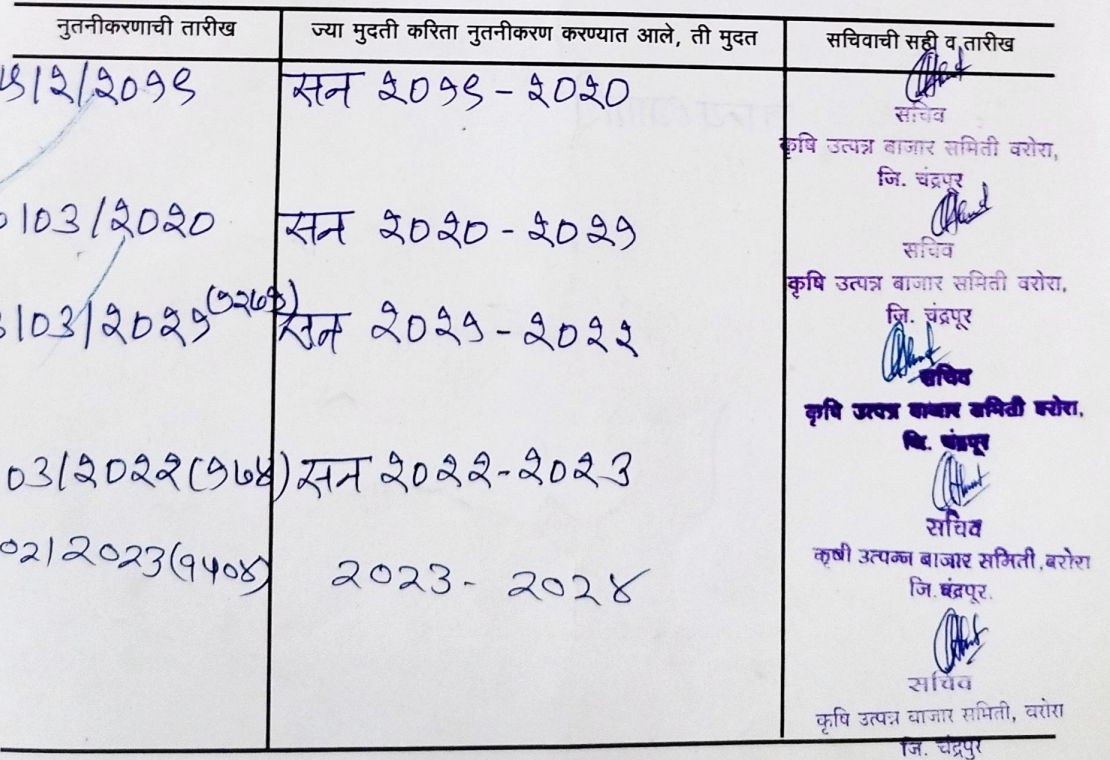 नुतनीकरणाची तारीख
ज्या मुदती करिता नुतनीकरण करण्यात आले, ती मुदत
सचिवाची सही व तारीख
/२/२०१९
सन २०१९ - २०२०
सचिव
कृषि उत्पन्न बाजार समिती वरोरा,
जि. चंद्रपूर
/03/२०२०
सन २०२० - २०२१
सचिव
कृषि उत्पन्न बाजार समिती वरोरा,
जि. चंद्रपूर
/03/२०२१
सन २०२१ - २०२२
सचिव
कृषि उत्पन्न बाजार समिती वरोरा,
जि. चंद्रपूर
03/२०२२ (१७४)
सन २०२२-२०२३
सचिव
कृषी उत्पन्न बाजार समिती,वरोरा
जि.चंद्रपूर.
०२/२०२३(१५०४)
२०२३- २०२४
सचिव
कृषि उत्पन्न बाजार समिती, वरोरा
जि. चंद्रपुर